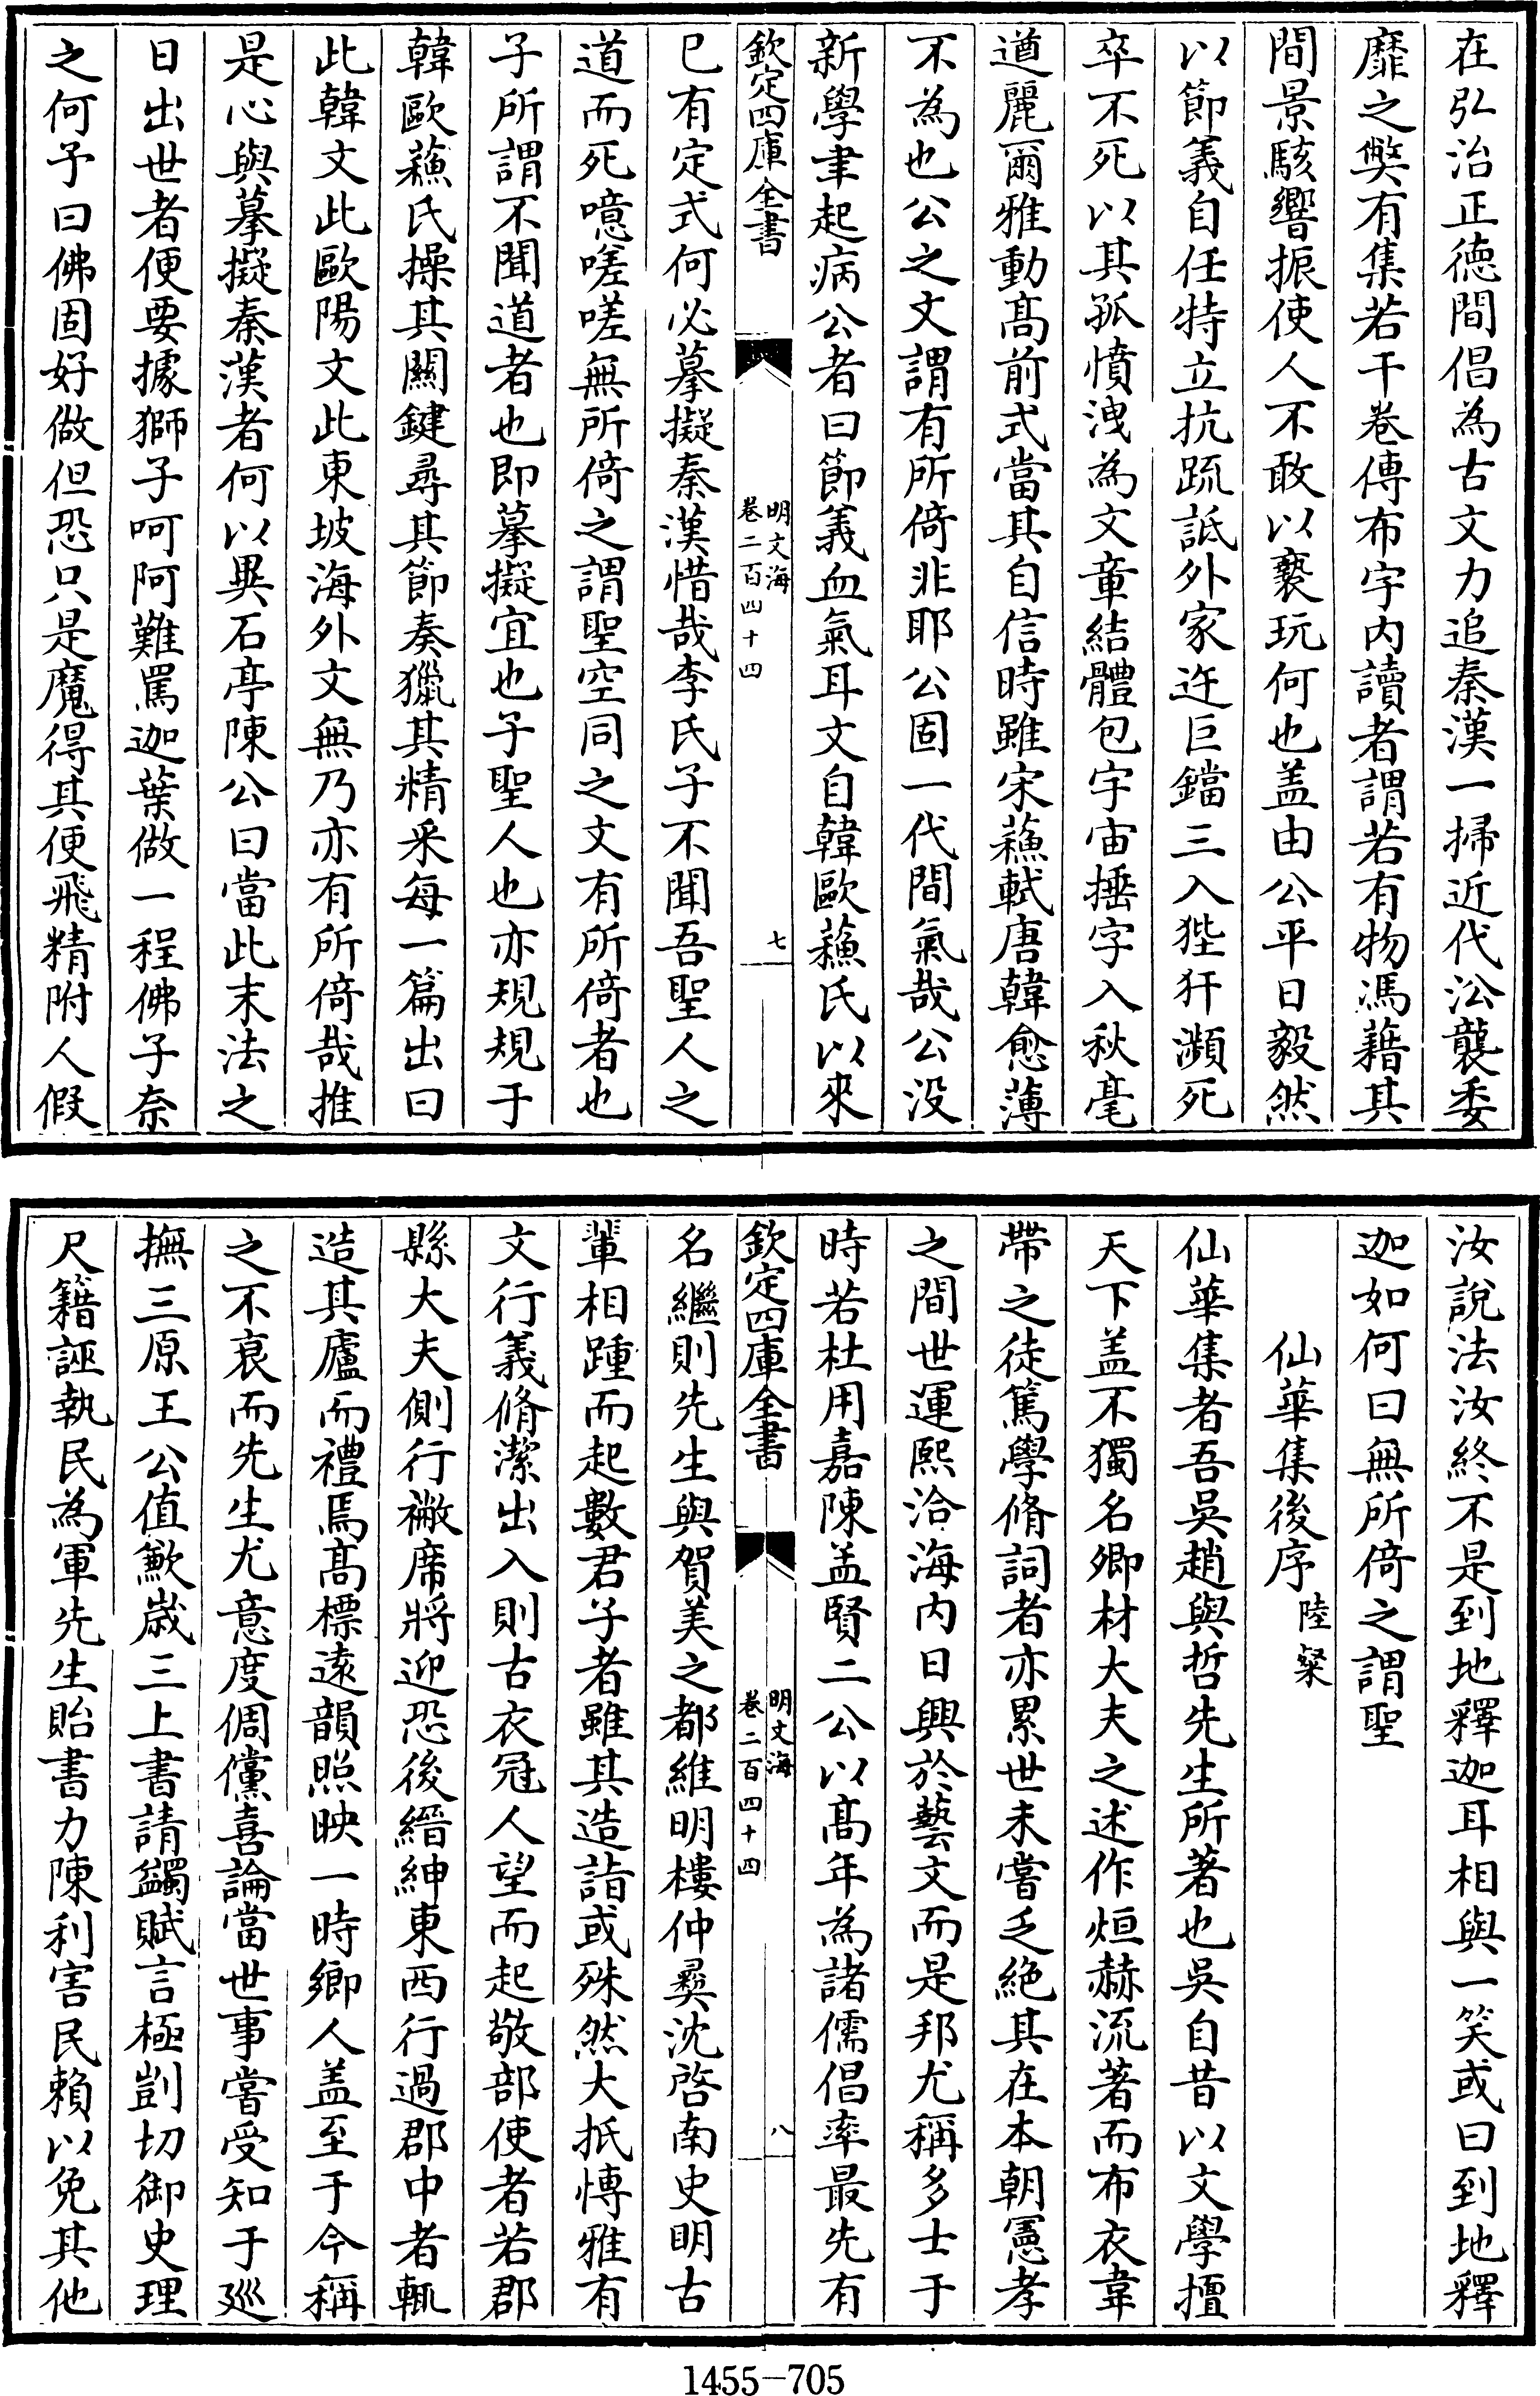 在弘治正徳間倡為古文力追秦漢一掃近代㳂襲委
靡之獘有集若干卷傳布宇内讀者謂若有物馮藉其
間景駭響振使人不敢以褻玩何也盖由公平日毅然
以節義自任特立抗疏詆外家迕巨鐺三入狴犴瀕死
卒不死以其孤憤洩為文章結體包宇宙捶字入秋毫
遒麗爾雅動髙前式當其自信時雖宋蘓軾唐韓愈薄
不為也公之文謂有所倚非耶公固一代間氣哉公没
新學聿起病公者曰節義血氣耳文自韓歐蘓氏以來
欽定四庫全書
明文海
卷二百四十四
七
已有定式何必摹擬秦漢惜哉李氏子不聞吾聖人之
道而死噫嗟嗟無所倚之謂聖空同之文有所倚者也
子所謂不聞道者也即摹擬宜也子聖人也亦規規于
韓歐蘓氏操其關鍵尋其節奏獵其精采每一篇出曰
此韓文此歐陽文此東坡海外文無乃亦有所倚哉推
是心與摹擬秦漢者何以異石亭陳公曰當此末法之
日出世者便要據獅子呵阿難罵迦葉做一程佛子奈
之何予曰佛固好做但恐只是魔得其便飛精附人假
汝說法汝終不是到地釋迦耳相與一笑或曰到地釋
迦如何曰無所倚之謂聖
仙華集後序 陸粲
仙華集者吾吳趙與哲先生所著也吳自昔以文學擅
天下盖不獨名卿材大夫之述作烜赫流著而布衣韋
帶之徒篤學脩詞者亦累世未嘗乏絶其在本朝憲孝
之間世運熙洽海内日興於藝文而是邦尤稱多士于
時若杜用嘉陳孟賢二公以髙年為諸儒倡率最先有
欽定四庫全書
明文海
卷二百四十四
八
名繼則先生與賀美之都維明樓仲彛沈啓南史明古
輩相踵而起數君子者雖其造詣或殊然大抵愽雅有
文行義脩潔出入則古衣冠人望而起敬部使者若郡
縣大夫側行襒席將迎恐後縉紳東西行過郡中者輒
造其廬而禮焉髙標逺韻照映一時鄉人盖至于今稱
之不衰而先生尤意度倜儻喜論當世事嘗受知于廵
撫三原王公值歉嵗三上書請蠲賦言極剴切御史理
尺籍誣執民為軍先生貽書力陳利害民賴以免其他
1455-705